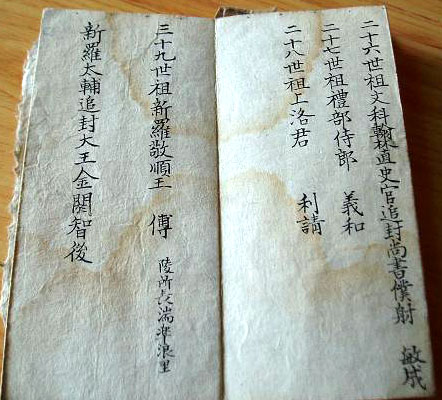 二十六世祖文科翰林直史官追封尚書僕射 敏成
二十七世祖禮部侍郎 義和
二十八世祖上洛君 利請
三十九世祖新羅敬順王 傅 陵所長湍半浪里
新羅太輔追封大王金閼智後